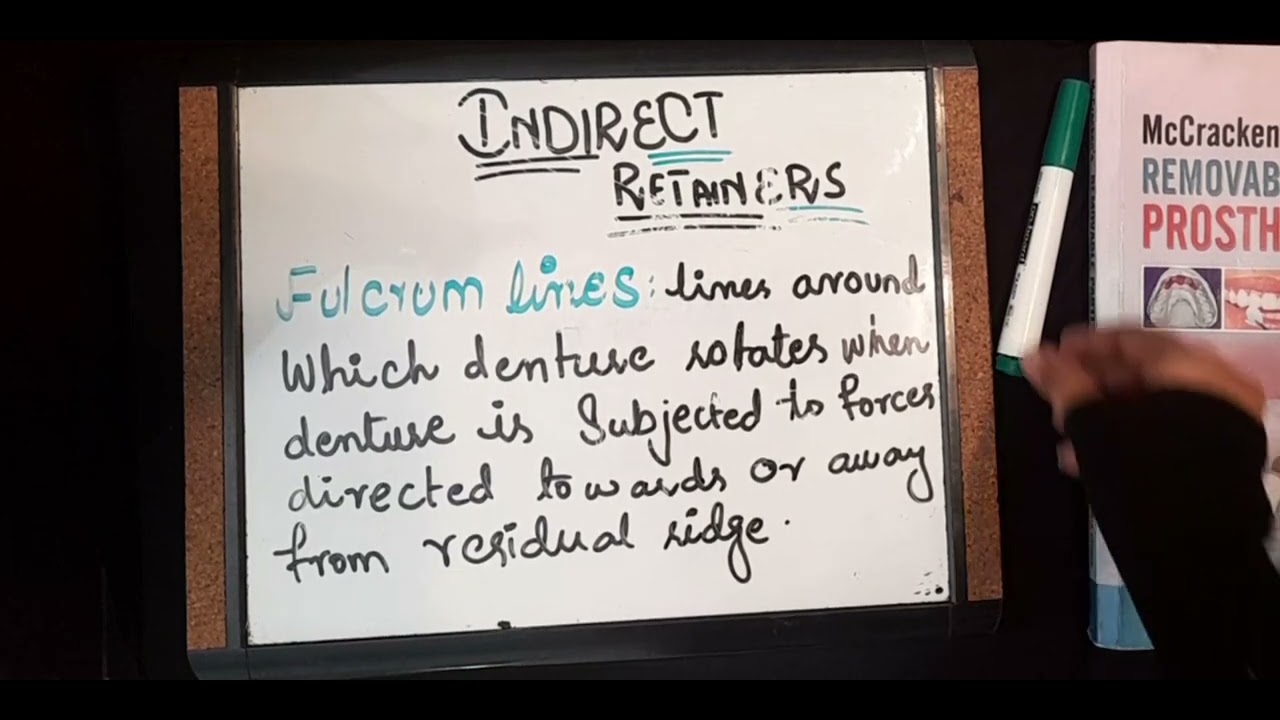 INDIRECT
RETAINERS
Fulcrum lines: lines around
which denture rotates when
denture is Subjected to forces
directed towards or away
from residual ridge.
McCracken
REMOVAB
PROSTH